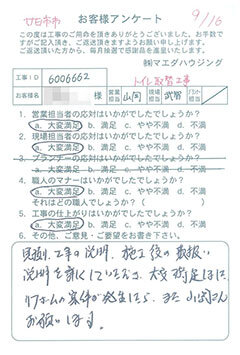 廿日市市
お客様アンケート
9/16
この度は工事のご用命を頂きありがとうございました。お手数で
すがご記入頂き、ご返送頂きますようお願い申し上げます。
ご返送頂いた方から、毎月抽選で感謝品を進呈いたします。
㈱マエダハウジング
工事ID 6006662 トイレ取替工事
お客様名 様 営業担当 山岡 現場担当 武智 プランナー担当
1. 営業担当者の応対はいかがでしたでしょうか？
a. 大変満足 b. 満足 c. やや不満 d. 不満
2. 現場担当者の応対はいかがでしたでしょうか？
a. 大変満足 b. 満足 c. やや不満 d. 不満
3. プランナーの応対はいかがでしたでしょうか？
a. 大変満足 b. 満足 c. やや不満 d. 不満
4. 職人のマナーはいかがでしたでしょうか？
a. 大変満足 b. 満足 c. やや不満 d. 不満
それはどの職人でしょうか？（　）
5. 工事の仕上がりはいかがでしたでしょうか？
a. 大変満足 b. 満足 c. やや不満 d. 不満
6. その他、ご意見・ご要望をお書き下さい。
見積り、工事の説明、施工後の取扱い
説明を詳しくしていただき、大変満足です。
リフォームの案件が発生したら、また山岡さん
お願いします。